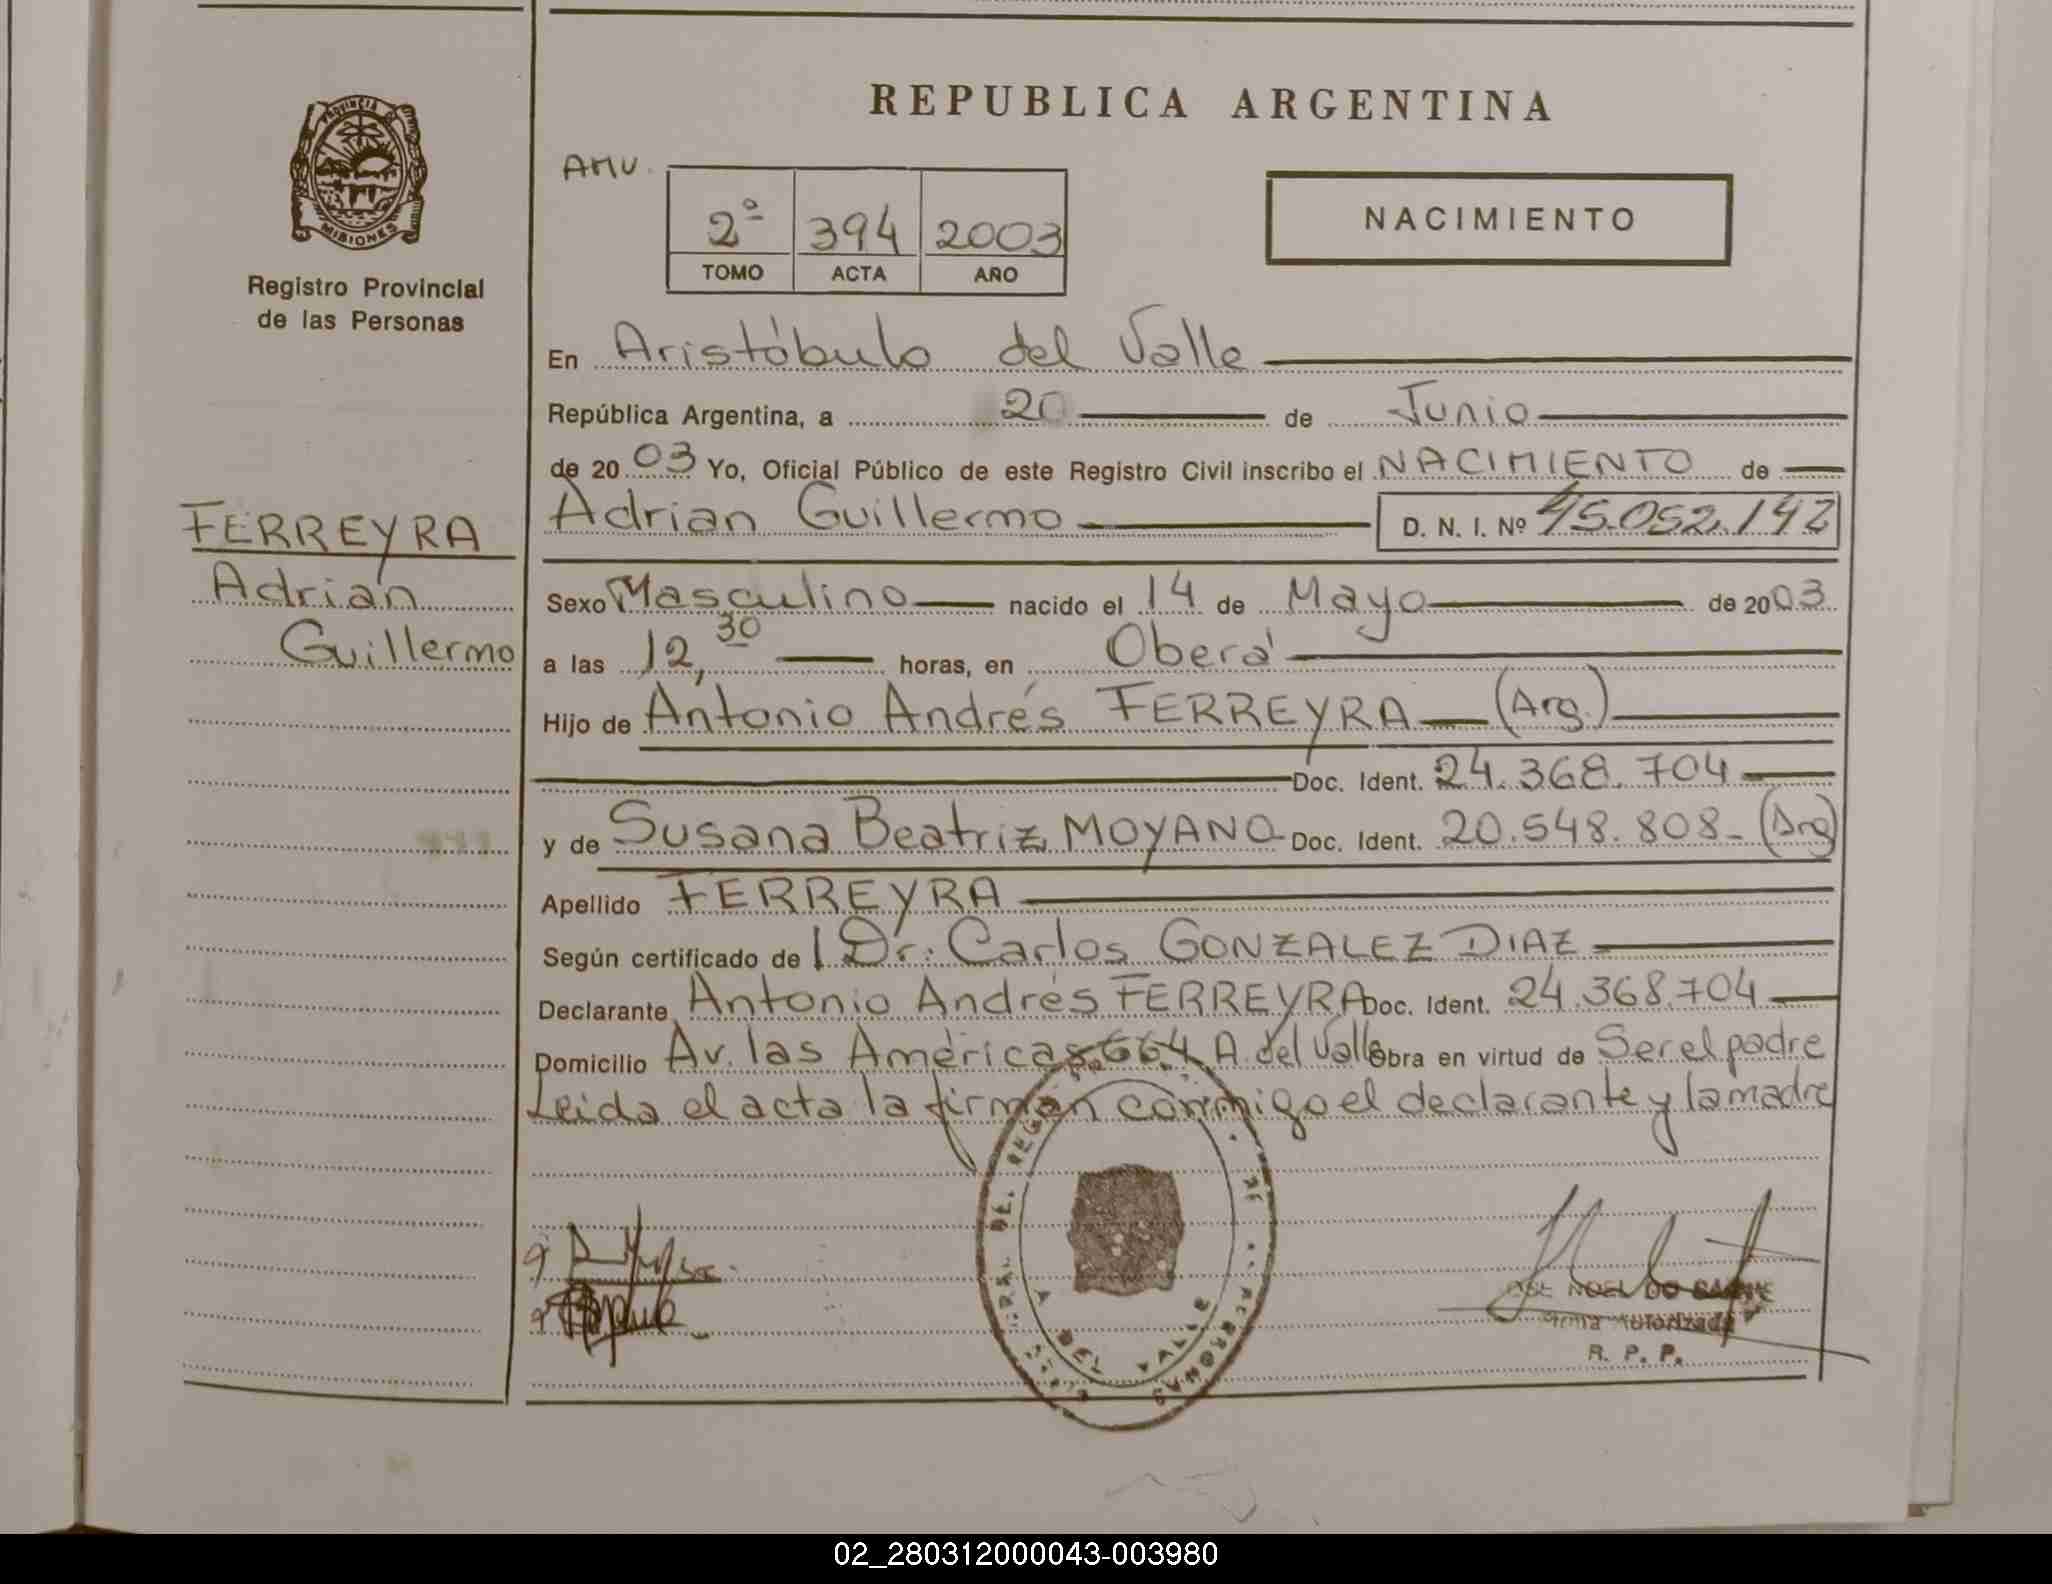 REPUBLICA ARGENTINA
PROVINCIA
MISIONES
Registro Provincial
de las Personas
AMU.
2ª 394 2003
TOMO ACTA AÑO
NACIMIENTO
En Aristóbulo del Valle
República Argentina, a 20 de Junio
de 2003 Yo, Oficial Público de este Registro Civil inscribo el NACIMIENTO de
FERREYRA
Adrian
Guillermo
Adrian Guillermo D. N. I. Nº 45.052.142
Sexo Masculino nacido el 14 de Mayo de 2003
a las 12,30 horas, en Oberá
Hijo de Antonio Andrés FERREYRA (Arg.)
Doc. Ident. 24.368.704
y de Susana Beatriz MOYANO Doc. Ident. 20.548.808 - (Arg)
Apellido FERREYRA
Según certificado de Dr. Carlos GONZALEZ DIAZ
Declarante Antonio Andrés FERREYRA Doc. Ident. 24.368.704
Domicilio Av. las Américas 664 A. del Valle Obra en virtud de Ser el padre
Leida el acta la firman conmigo el declarante y la madre
NOEL DO
Firma Autorizada
R. P. P.
02_280312000043-003980